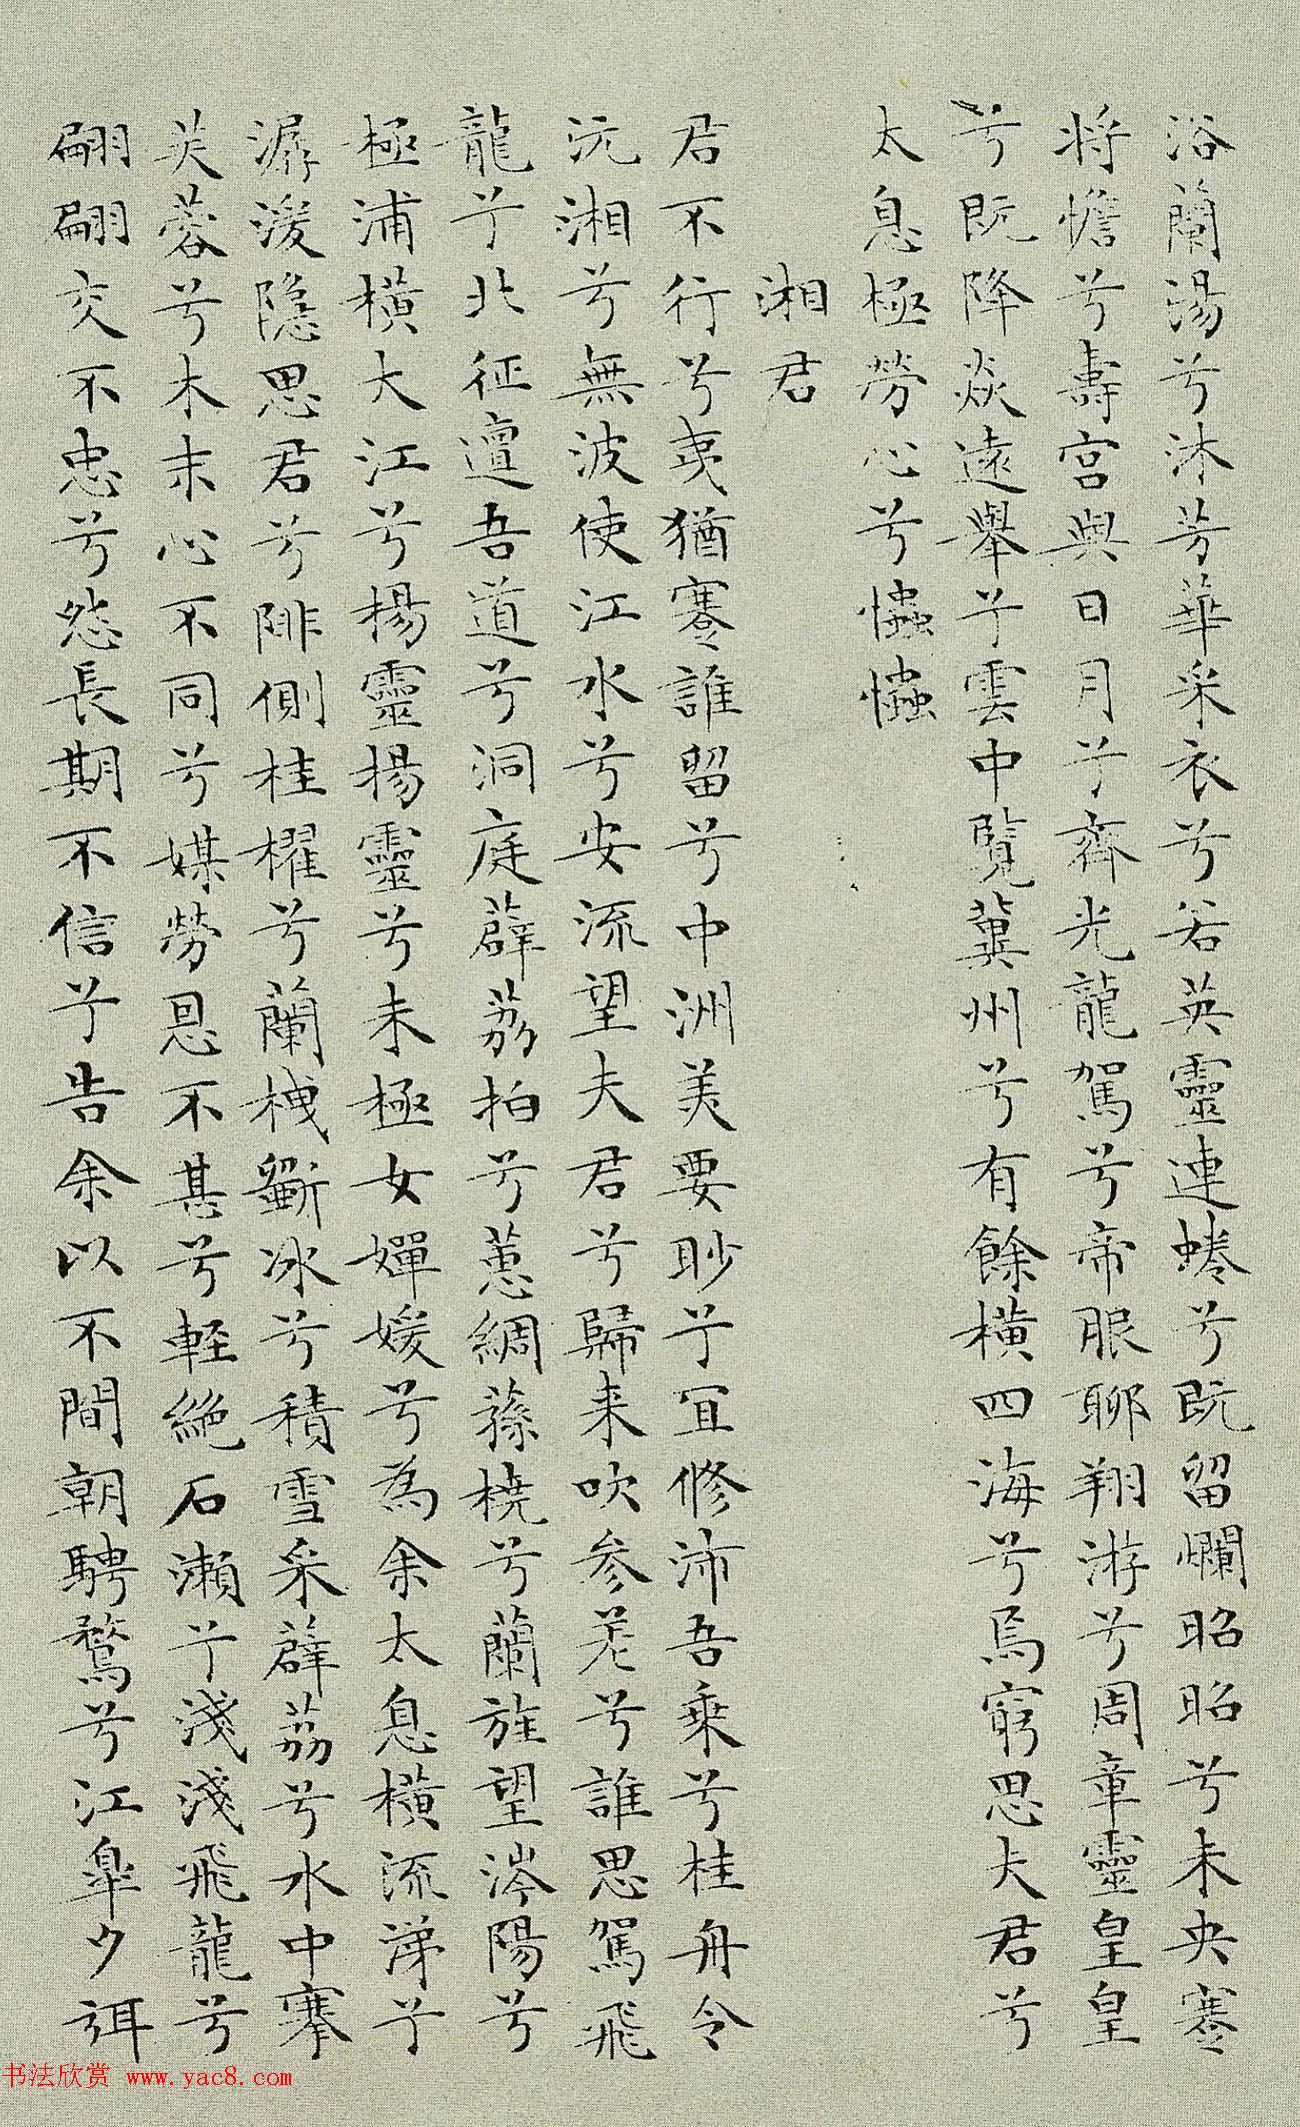 浴蘭湯兮沐芳華采衣兮若英靈連蜷兮既留爛昭昭兮未央蹇
將憺兮壽宮與日月兮齊光龍駕兮帝服聊翔游兮周章靈皇皇
兮既降猋遠舉兮雲中覽冀州兮有餘橫四海兮焉窮思夫君兮
太息極勞心兮忡忡
湘君
君不行兮夷猶蹇誰留兮中洲美要眇兮宜修沛吾乘兮桂舟令
沅湘兮無波使江水兮安流望夫君兮歸來吹參差兮誰思駕飛
龍兮北征邅吾道兮洞庭薜荔拍兮蕙綢蓀橈兮蘭旌望涔陽兮
極浦橫大江兮揚靈揚靈兮未極女嬋媛兮為余太息橫流涕兮
潺湲隱思君兮陫側桂櫂兮蘭枻斲冰兮積雪采薜荔兮水中搴
芙蓉兮木末心不同兮媒勞恩不甚兮輕絕石瀨兮淺淺飛龍兮
翩翩交不忠兮怨長期不信兮告余以不間朝騁騖兮江皋夕弭
书法欣赏 www.yac8.com